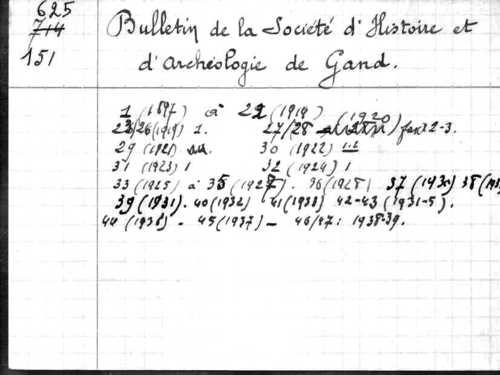 625
714
151
Bulletin de la Société d'Histoire et
d'Archéologie de Gand.
1 (1897) à 22 (1914)
23/26 (1919) 1. 27/28 (1920) fasc 2-3.
29 (1921) 30 (1922) 1-2
31 (1923) 1 32 (1924) 1
33 (1925) à 35 (1927). 36 (1928) 37 (1930) 38
39 (1931). 40 (1932) 41 (1933) 42-43 (1931-5).
44 (1936) - 45 (1937) - 46/47: 1938-39.